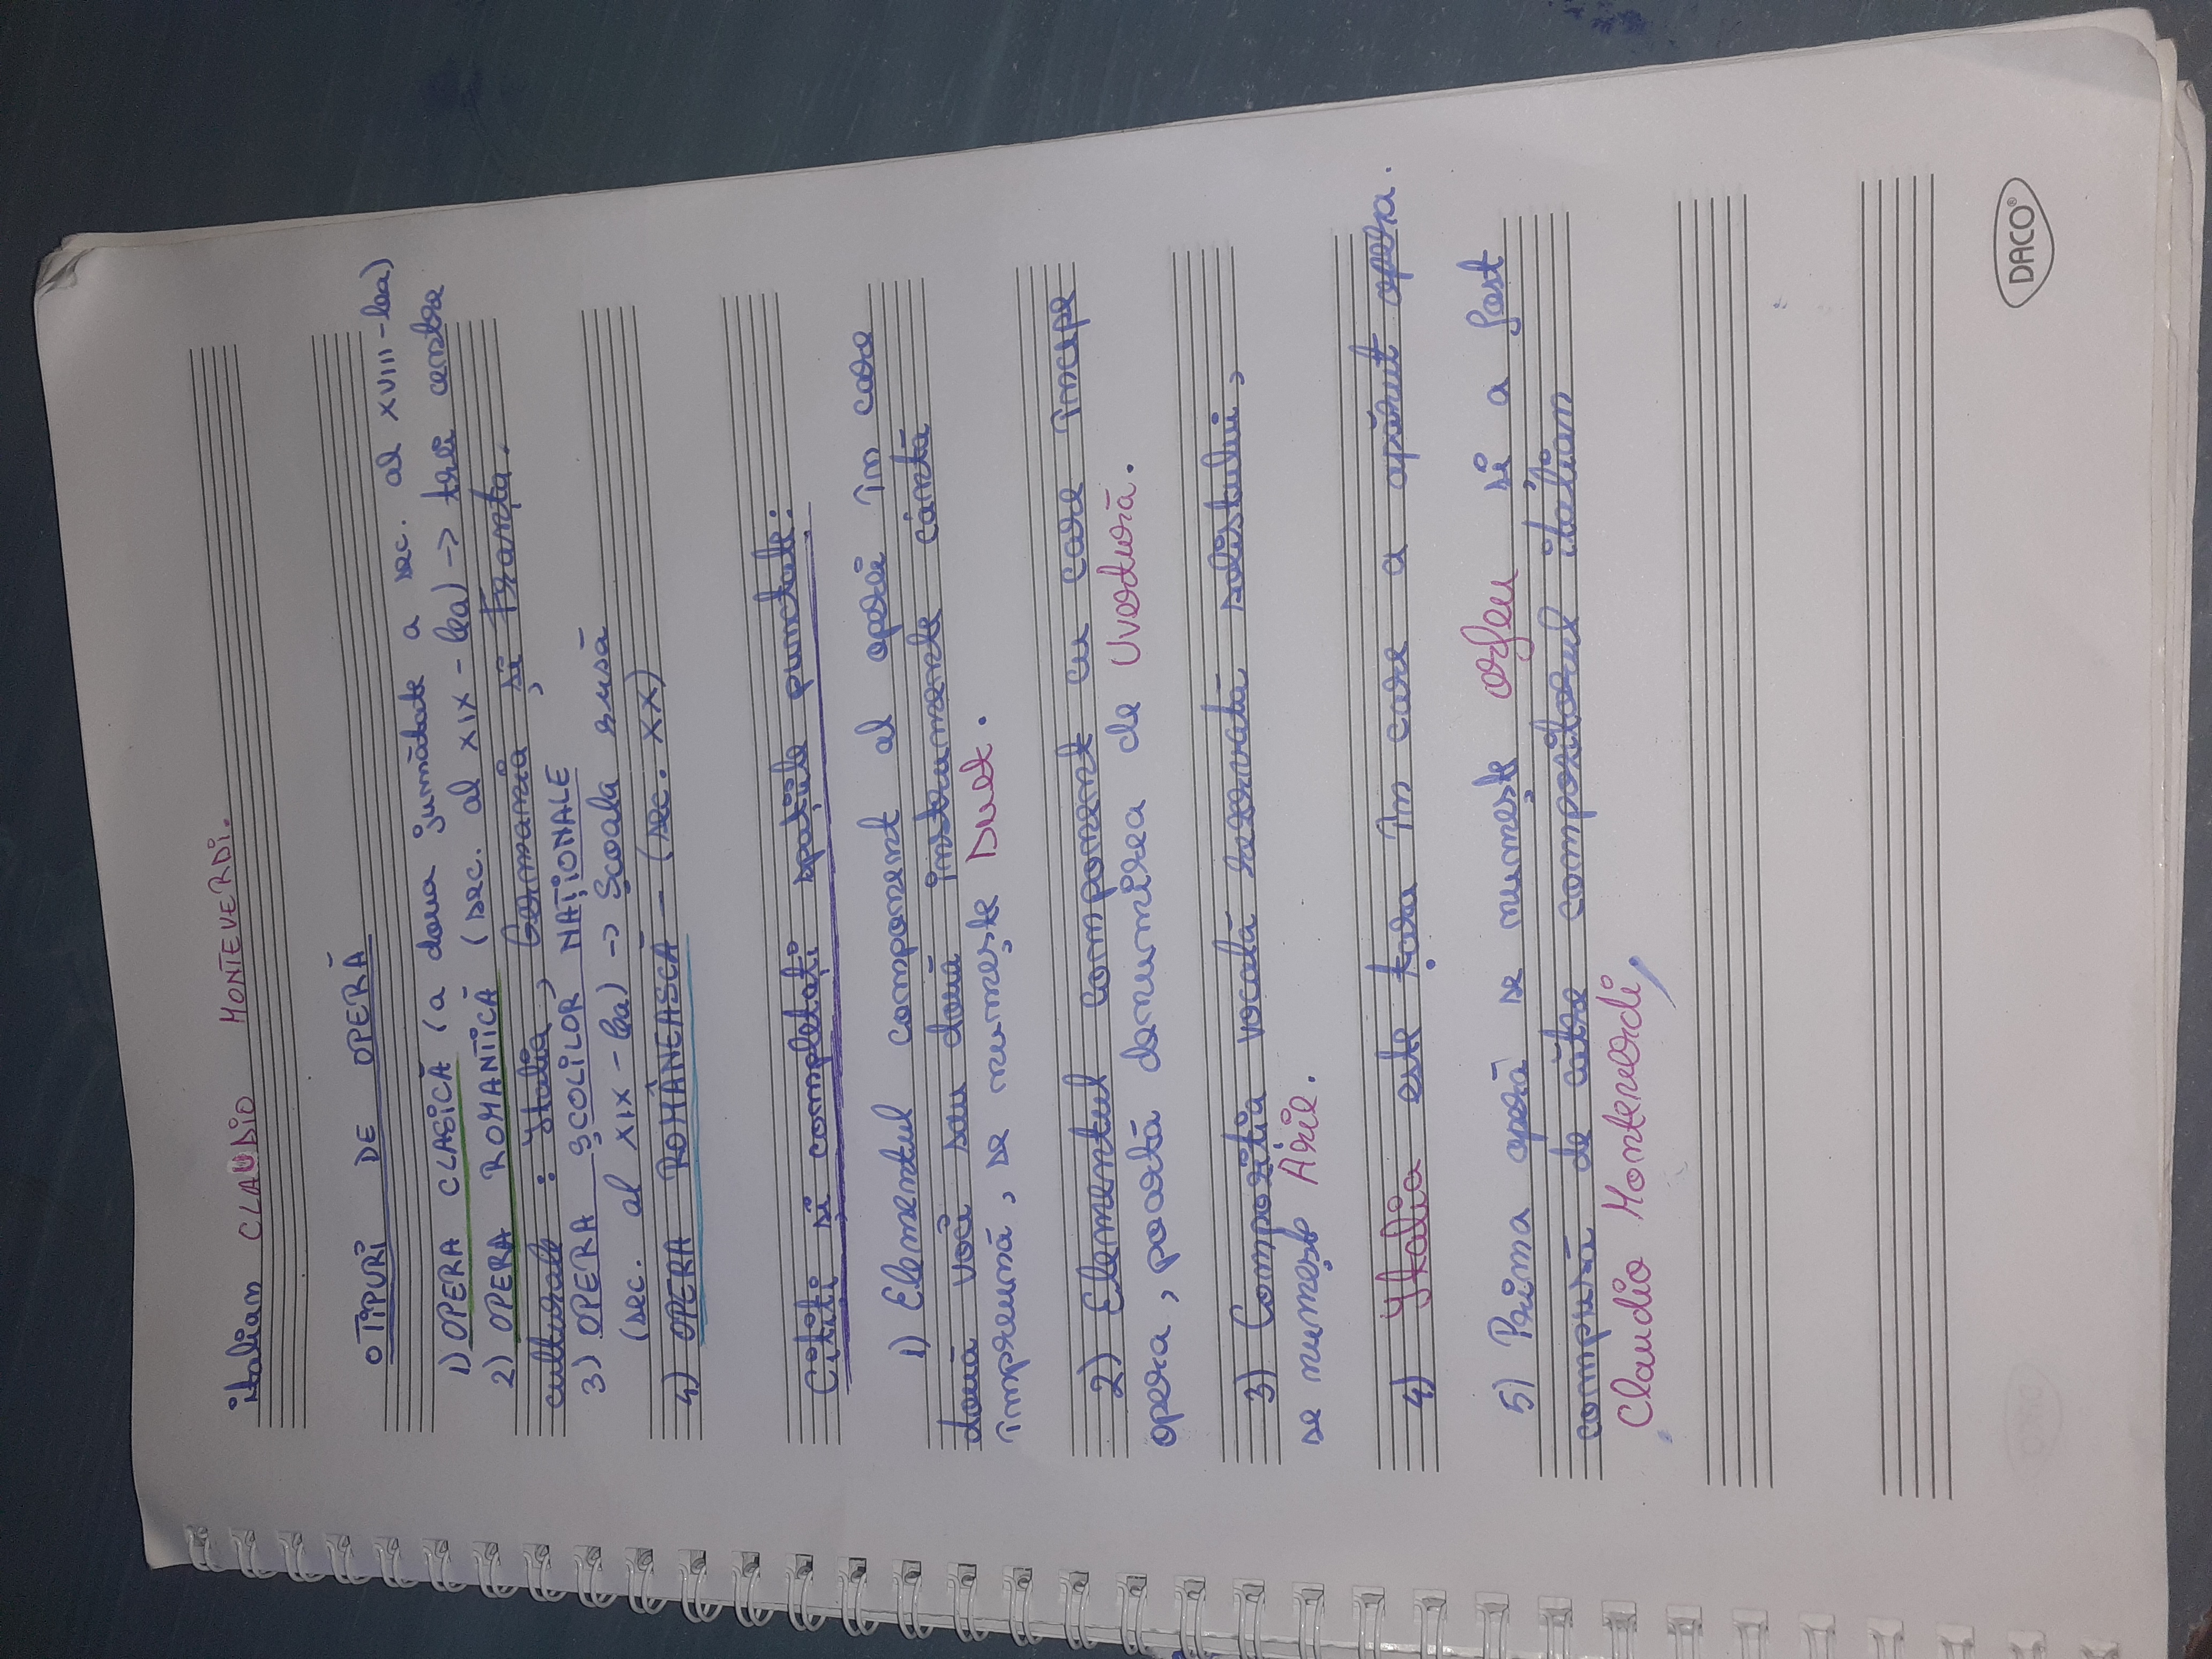 italian CLAUDIO MONTEVERDI.
o TIPURI DE OPERĂ
1) OPERA CLASICĂ (a doua jumătate a sec. al XVIII-lea)
2) OPERA ROMANTICĂ (sec. al XIX-lea) -> trei centre
culturale: Italia, Germania și Franța.
3) OPERA ȘCOLILOR NAȚIONALE
(sec. al XIX-lea) -> Școala rusă
4) OPERA ROMÂNEASCĂ - (sec. XX)
Citiți și completați spațiile punctate:
1) Elementul component al operei în care
două voci sau două instrumente cântă
împreună, se numește Duet.
2) Elementul component cu care începe
opera, poartă denumirea de Uvertură.
3) Compoziția vocală rezervată solistului,
se numește Arie.
4) Italia este țara în care a apărut opera.
5) Prima operă se numește Orfeu și a fost
compusă de către compozitorul italian
Claudio Monteverdi,
DACO®